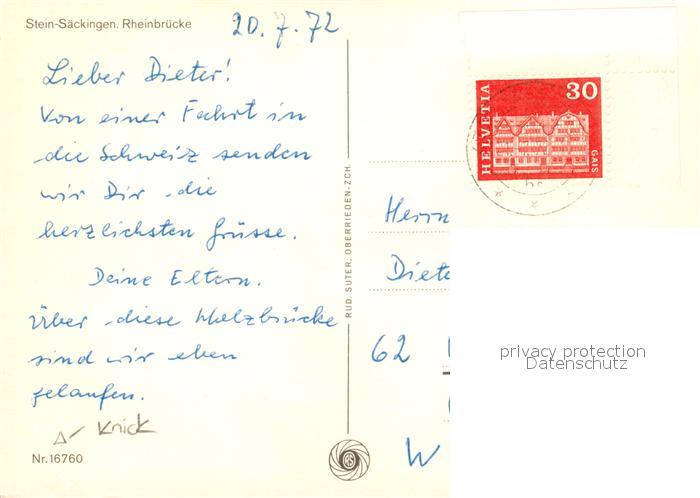 Stein-Säckingen. Rheinbrücke
20.7.72
Lieber Dieter!
Von einer Fahrt in
die Schweiz senden
wir Dir die
herzlichsten Grüsse.
Deine Eltern.
Über diese Holzbrücke
sind wir eben
gelaufen.
Knick
Nr. 16760
RUD. SUTER, OBERRIEDEN-ZCH.
RS
HELVETIA
30
GAIS
Herrn
Diete
62
W
privacy protection
Datenschutz